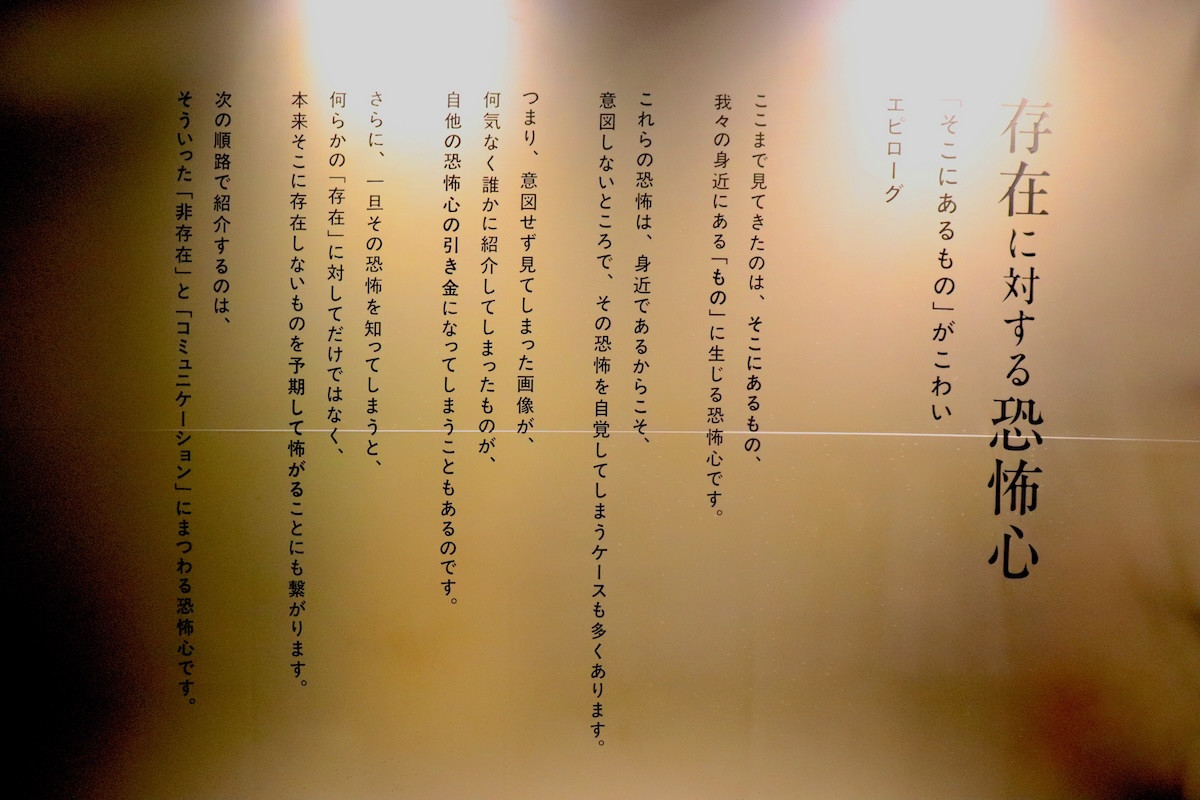 存在に対する恐怖心
「そこにあるもの」がこわい
エピローグ
ここまで見てきたのは、そこにあるもの、
我々の身近にある「もの」に生じる恐怖心です。
これらの恐怖は、身近であるからこそ、
意図しないところで、その恐怖を自覚してしまうケースも多くあります。
つまり、意図せず見てしまった画像が、
何気なく誰かに紹介してしまったものが、
自他の恐怖心の引き金になってしまうこともあるのです。
さらに、一旦その恐怖を知ってしまうと、
何らかの「存在」に対してだけではなく、
本来そこに存在しないものを予期して怖がることにも繋がります。
次の順路で紹介するのは、
そういった「非存在」と「コミュニケーション」にまつわる恐怖心です。